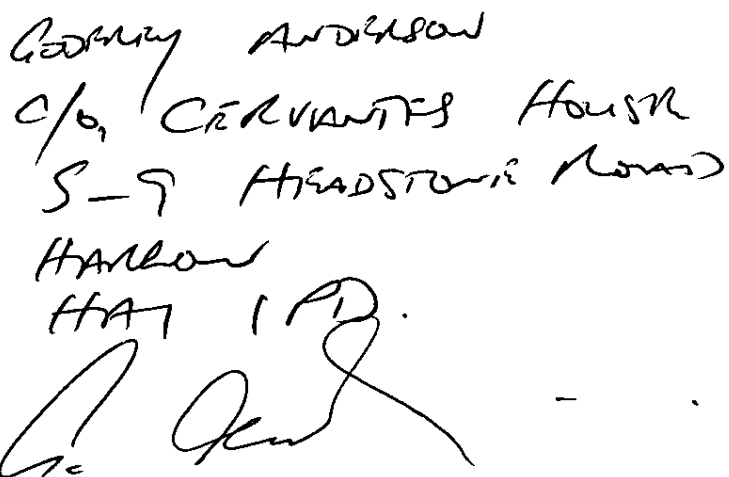 GODFREY ANDERSON
C/O, CERVANTES HOUSE
5-9 HEADSTONE ROAD
HARROW
HA1 1PD.
G.